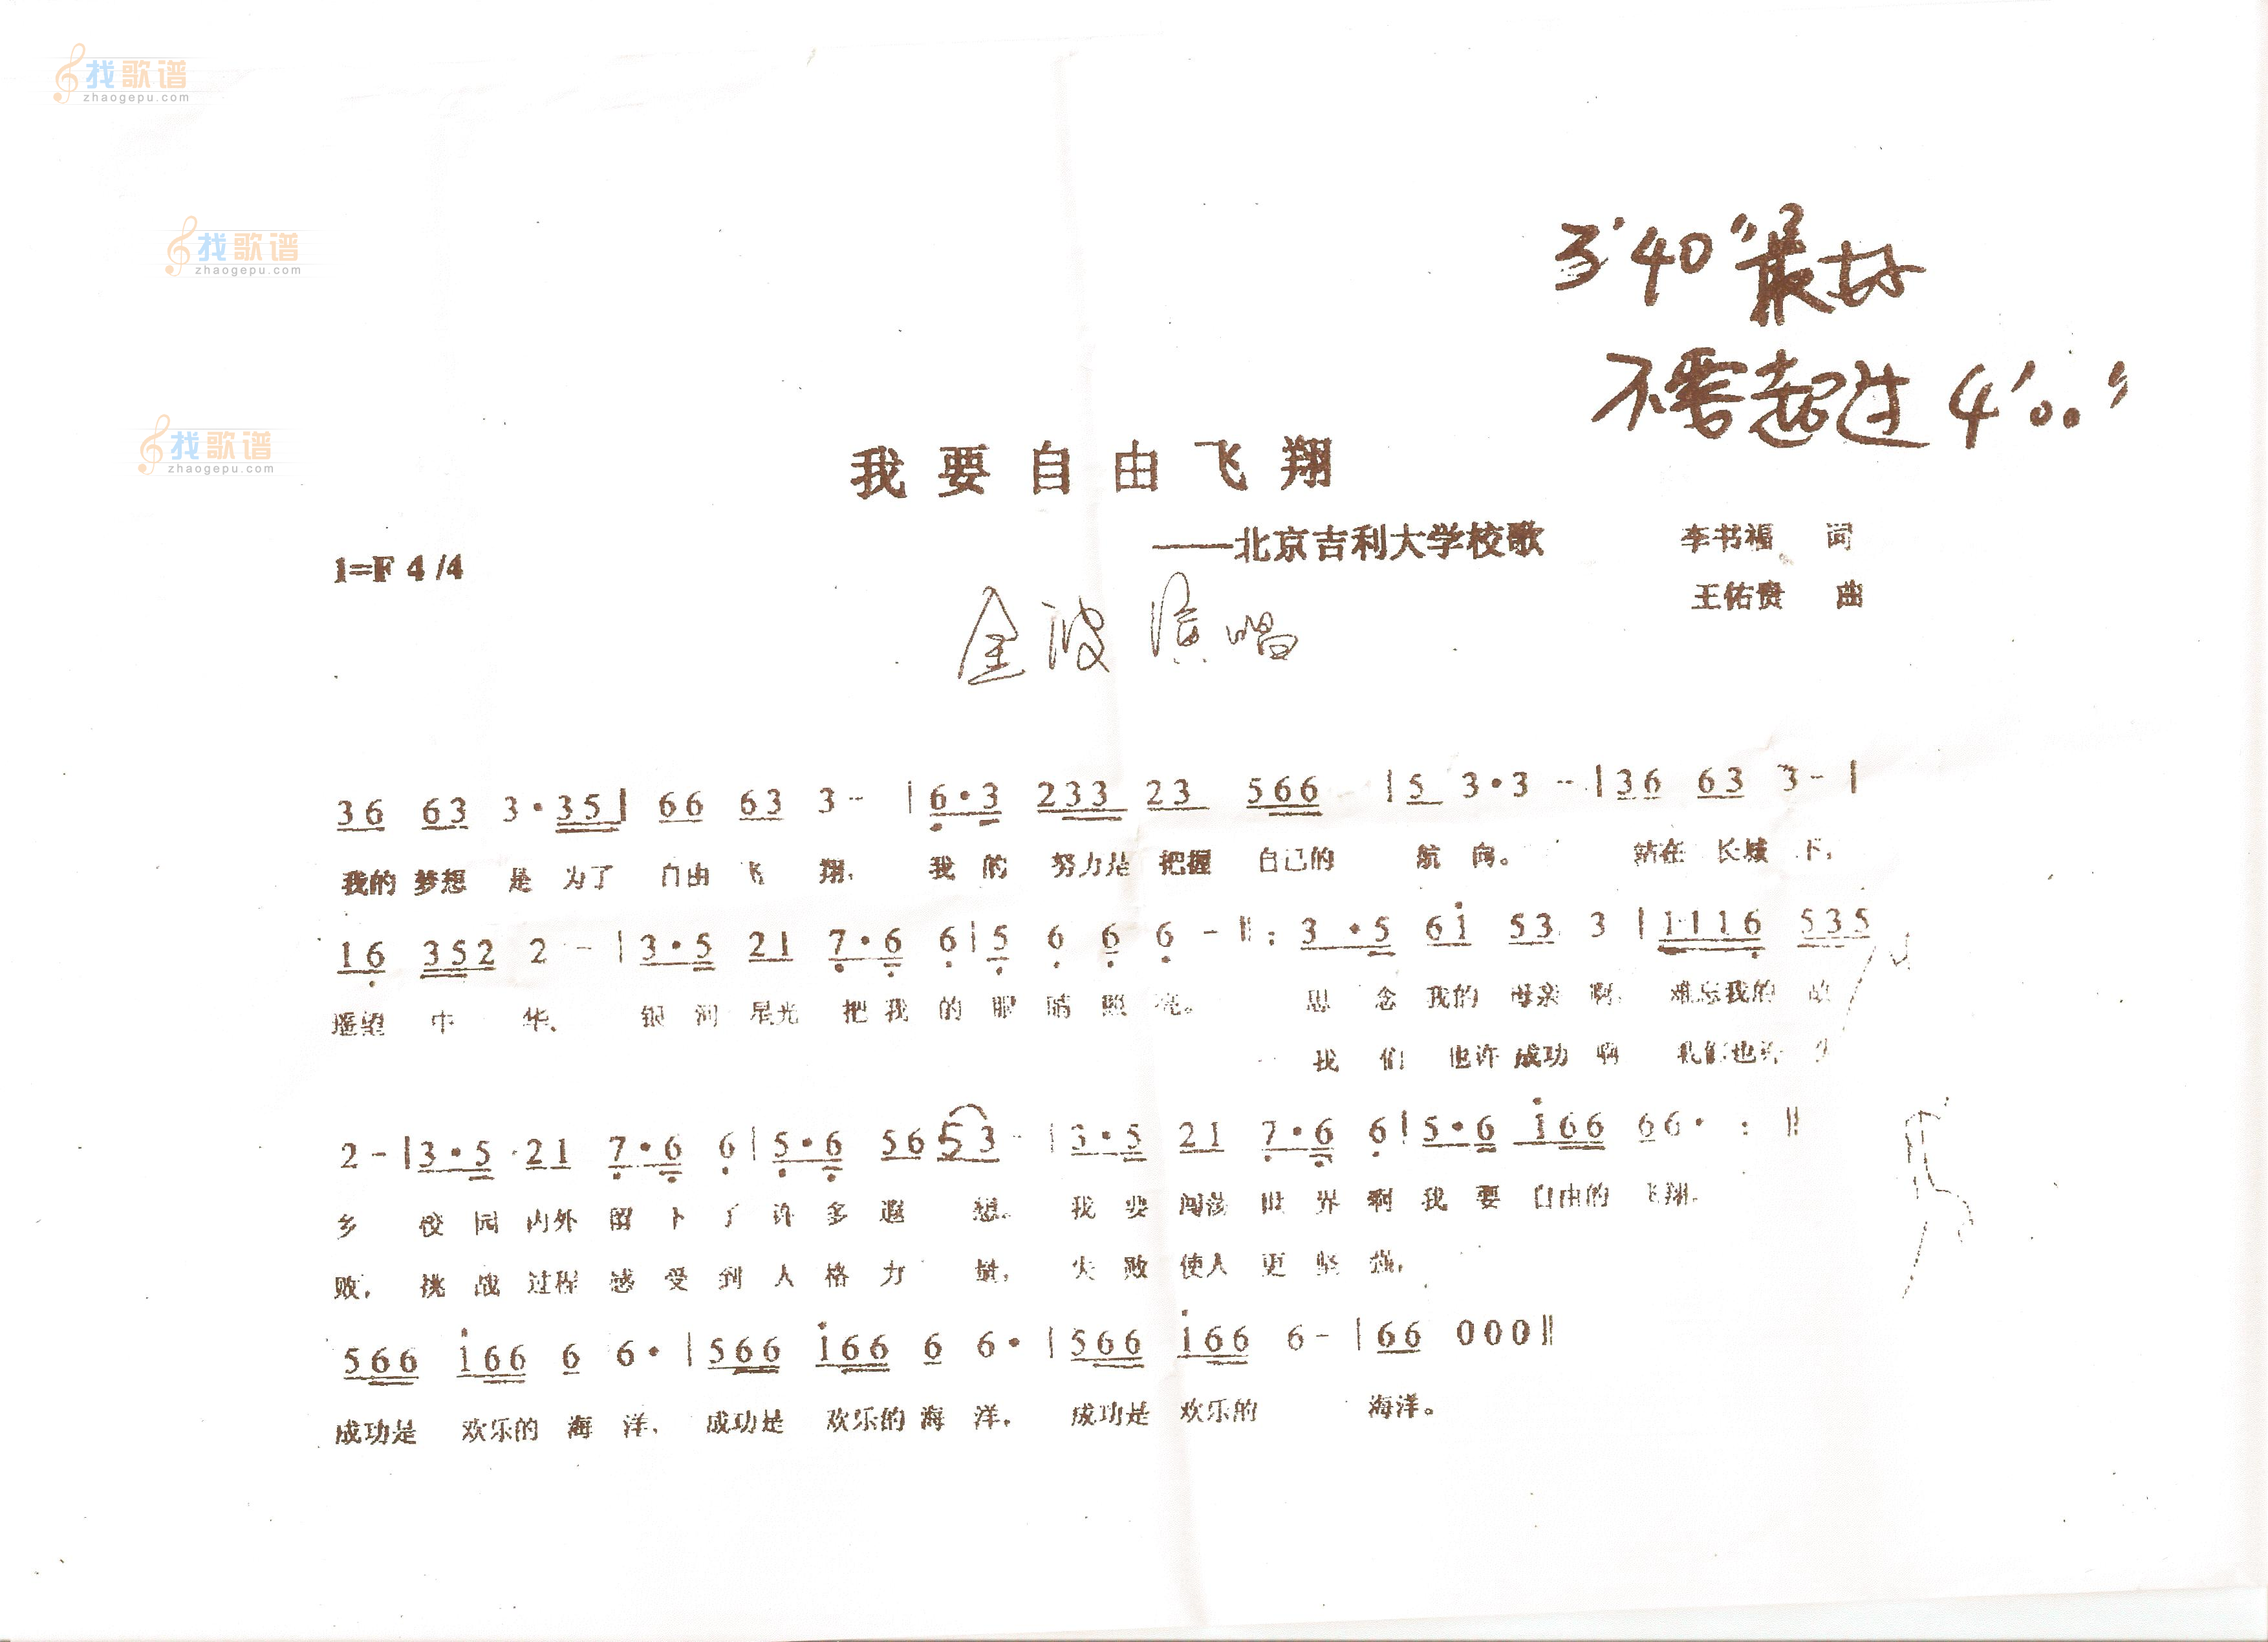 找歌谱
zhaogepu.com
找歌谱
zhaogepu.com
3'40"最好
不要超过4'00"
找歌谱
zhaogepu.com
我要自由飞翔
——北京吉利大学校歌 李书福 词
1=F 4/4
王佑贵 曲
金波演唱
36 63 3·35| 66 63 3- |6·3 233 23 566 |5 3·3 -|36 63 3-|
我的梦想 是 为了 自由 飞 翔, 我 的 努力是 把握 自己的 航 向。 站在 长城 下,
16 352 2 -|3·5 21 7·6 6|5 6 6 6 -‖: 3·5 6i 53 3|1·116 535
遥望 中 华、 银 河 星光 把 我 的 眼 睛 照 亮。 思 念 我的 母亲 啊, 难忘我的 故
我 们 也许 成功 啊 我们也许 失
2-|3·5 21 7·6 6|5·6 56 53 -|3·5 21 7·6 6|5·6 i66 66· :‖
乡 校 园 内外 留 下 了 许 多 遐 想。 我 要 闯荡 世 界 啊 我 要 自由的 飞翔。
败, 挑 战 过程 感 受 到 人 格 力 量, 失 败 使人 更 坚 强,
566 i66 6 6·|566 i66 6 6·|566 i66 6-|66 000‖
成功是 欢乐的 海 洋, 成功是 欢乐的 海 洋, 成功是 欢乐的 海洋。